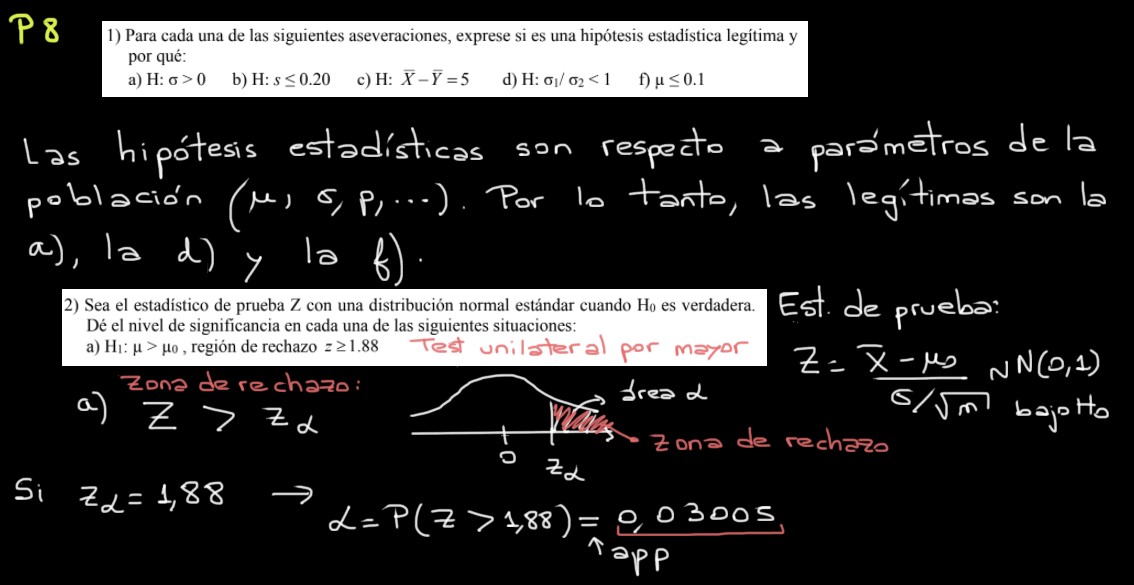 P8
1) Para cada una de las siguientes aseveraciones, exprese si es una hipótesis estadística legítima y
por qué:
a) H: σ > 0 b) H: s ≤ 0.20 c) H: X̅ − Y̅ = 5 d) H: σ₁/ σ₂ < 1 f) μ ≤ 0.1
Las hipótesis estadísticas son respecto a parámetros de la
población (μ, σ, p, ...). Por lo tanto, las legítimas son la
a), la d) y la f).
2) Sea el estadístico de prueba Z con una distribución normal estándar cuando H₀ es verdadera.
Dé el nivel de significancia en cada una de las siguientes situaciones:
a) H₁: μ > μ₀ , región de rechazo z ≥ 1.88 Test unilateral por mayor
Est. de prueba:
Z = (x̅ − μ₀)/(σ/√n) ~ N(0,1)
bajo H₀
Zona de rechazo:
a) Z > z_α
área α
zona de rechazo
0 z_α
Si z_α = 1,88 → α = P(Z > 1,88) = 0,03005
↑ app